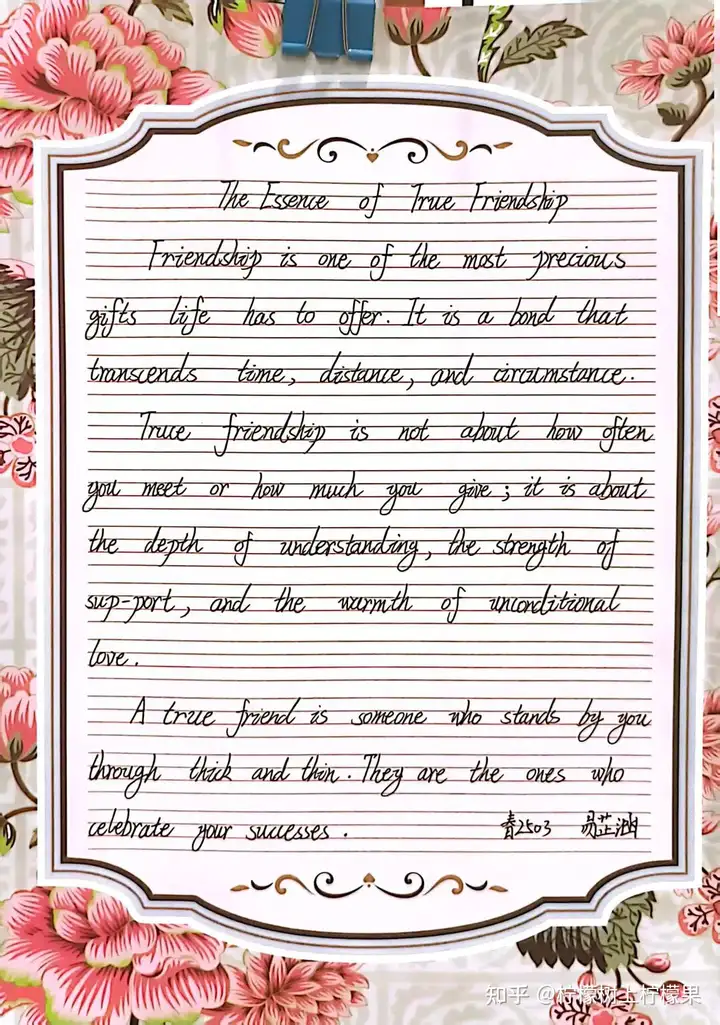 The Essence of True Friendship
Friendship is one of the most precious
gifts life has to offer. It is a bond that
transcends time, distance, and circumstance.
True friendship is not about how often
you meet or how much you give; it is about
the depth of understanding, the strength of
sup-port, and the warmth of unconditional
love.
A true friend is someone who stands by you
through thick and thin. They are the ones who
celebrate your successes.
春2503 易芷
知乎 @柠檬树上柠檬果